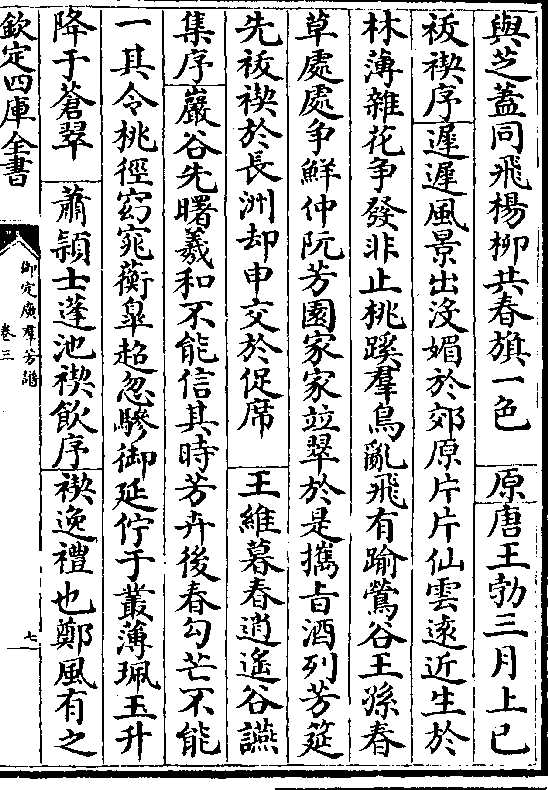 與芝蓋同飛楊柳共春旗一色　原唐王勃三月上巳
祓禊序遲遲風景出沒媚於郊原片片仙雲逺近生於
林薄雜花争發非止桃蹊羣鳥亂飛有踰鶯谷王孫春
草處處争鮮仲阮芳園家家竝翠於是攜㫖酒列芳筵
先祓禊於長洲却申交於促席　王維暮春逍遙谷讌
集序巖谷先曙羲和不能信其時芳卉後春勾芒不能
一其令桃徑窈窕蘅臯超忽驂御延佇于叢薄珮玉升
降于蒼翠　蕭頴士蓬池禊飲序禊逸禮也鄭風有之
欽定四庫全書
御定廣羣芳譜
卷三
七